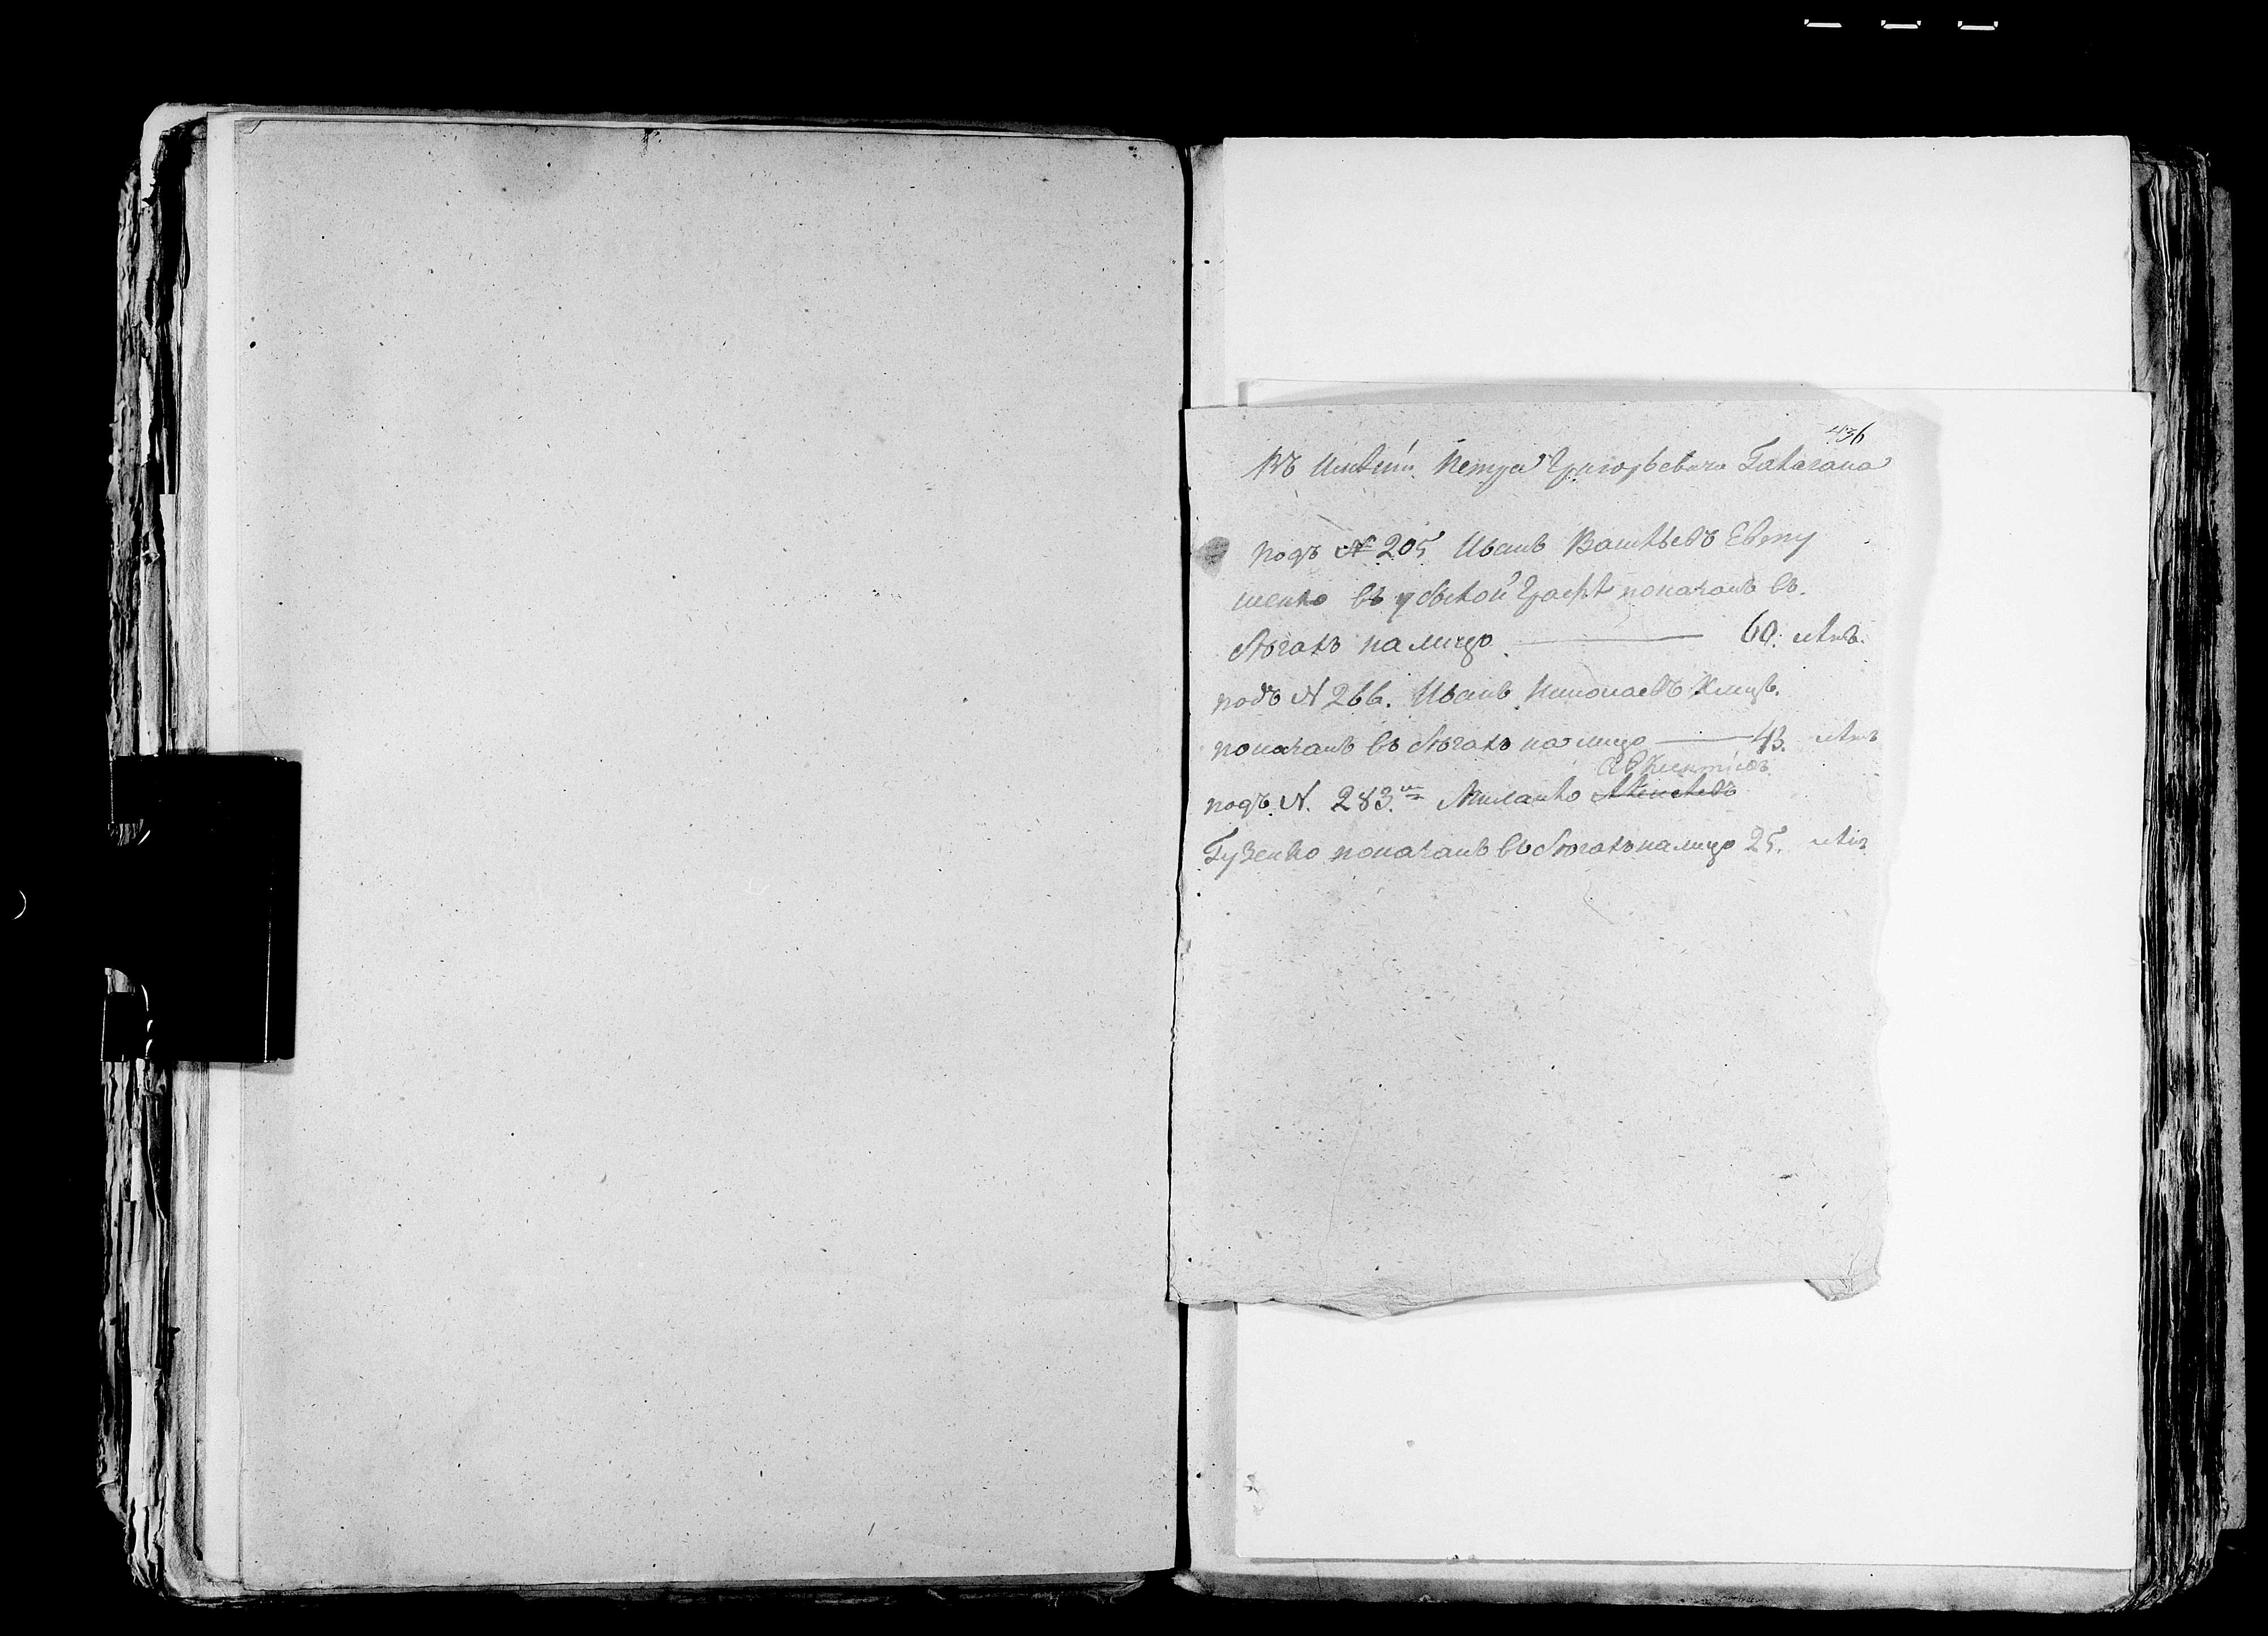 436
Въ Имѣнiи Петра Григорьевича Галагана
подъ № 205 Иванъ Васильевъ Евту
шенко въ убылой графѣ показанъ въ
бѣгахъ на лицо — 60. лѣтъ.
подъ N 266. Иванъ Николаевъ
показанъ въ бѣгахъ на лицо — 43. лѣтъ
Авксентiевъ
подъ N. 283.м Михайло Алексѣевъ
Гузенко показанъ въ бѣгахъ на лицо 25. лѣтъ